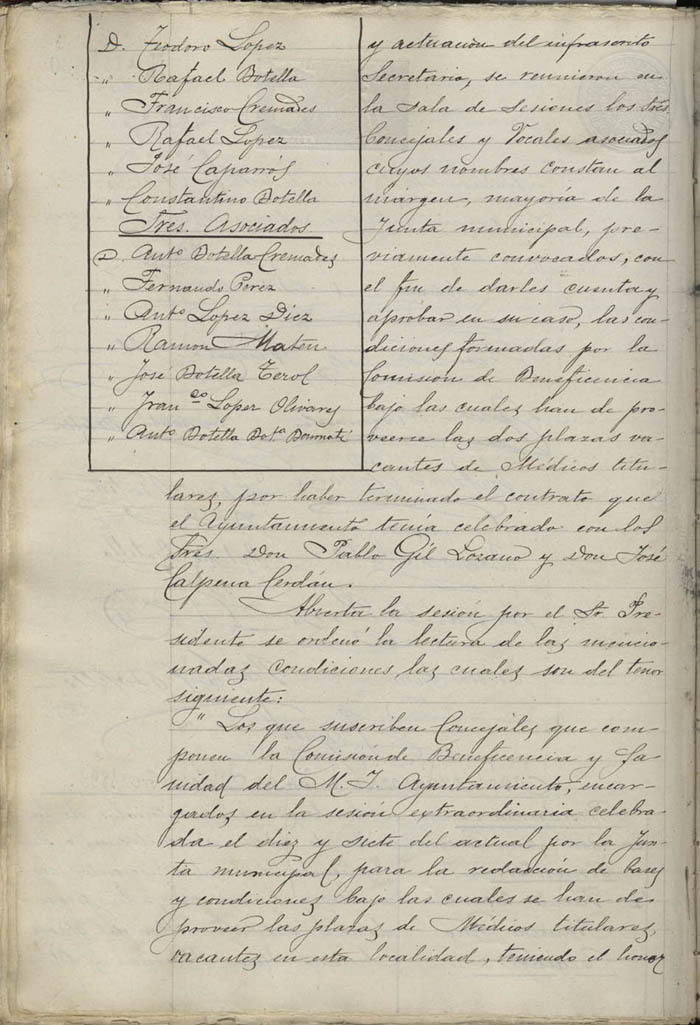 D. Teodoro Lopez
" Rafael Botella
" Francisco Cremades
" Rafael Lopez
" José Caparrós
" Constantino Botella
Sres. Asociados.
D. Antº Botella Cremades
" Fernando Perez
" Antº Lopez Diez
" Ramon Mateu
" José Botella Terol
" Franco Lopez Olivares
" Antº Botella Botª
y actuación del infrascrito
Secretario, se reunieron en
la sala de sesiones los Sres
Concejales y Vocales asociados
cuyos nombres constan al
márgen, mayoría de la
Junta municipal, pre-
viamente convocados, con
el fin de darles cuenta y
aprobar en su caso, las con-
diciones formadas por la
Comision de Beneficencia
bajo las cuales han de pro-
veerse las dos plazas va-
cantes de Médicos titu-
lares, por haber terminado el contrato que
el Ayuntamiento tenía celebrado con los
Sres. Don Pablo Gil Lozano y Don José
Calpena Cerdán.
Abierta la sesión por el Sr. Pre-
sidente se ordenó la lectura de las mencio-
nadas condiciones las cuales son del tenor
siguiente:
" Los que suscriben Concejales que com-
ponen la Comisión de Beneficencia y Sa-
nidad del M. I. Ayuntamiento, encar-
gados en la sesión extraordinaria celebra-
da el diez y siete del actual por la Jun-
ta municipal, para la redacción de bases
y condiciones bajo las cuales se han de
proveer las plazas de Médicos titulares,
vacantes en esta localidad, teniendo el honor